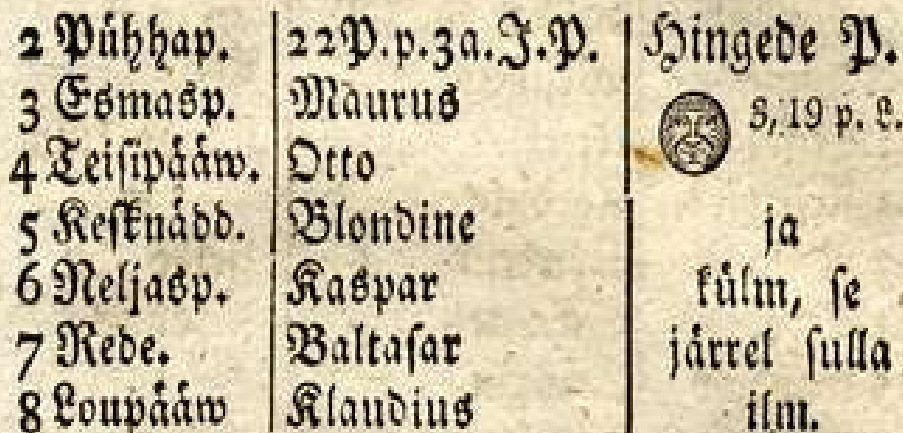 2 Pühhap. 22P.p.3a.J.P. Hingede P.
3 Esmasp. Maurus 8, 19 p. L.
4 Teisipääw. Otto
5 Kesknädd. Blondine ja
6 Neljasp. Kaspar külm, se
7 Rede. Baltasar järrel sulla
8 Loupääw Klaudius ilm.